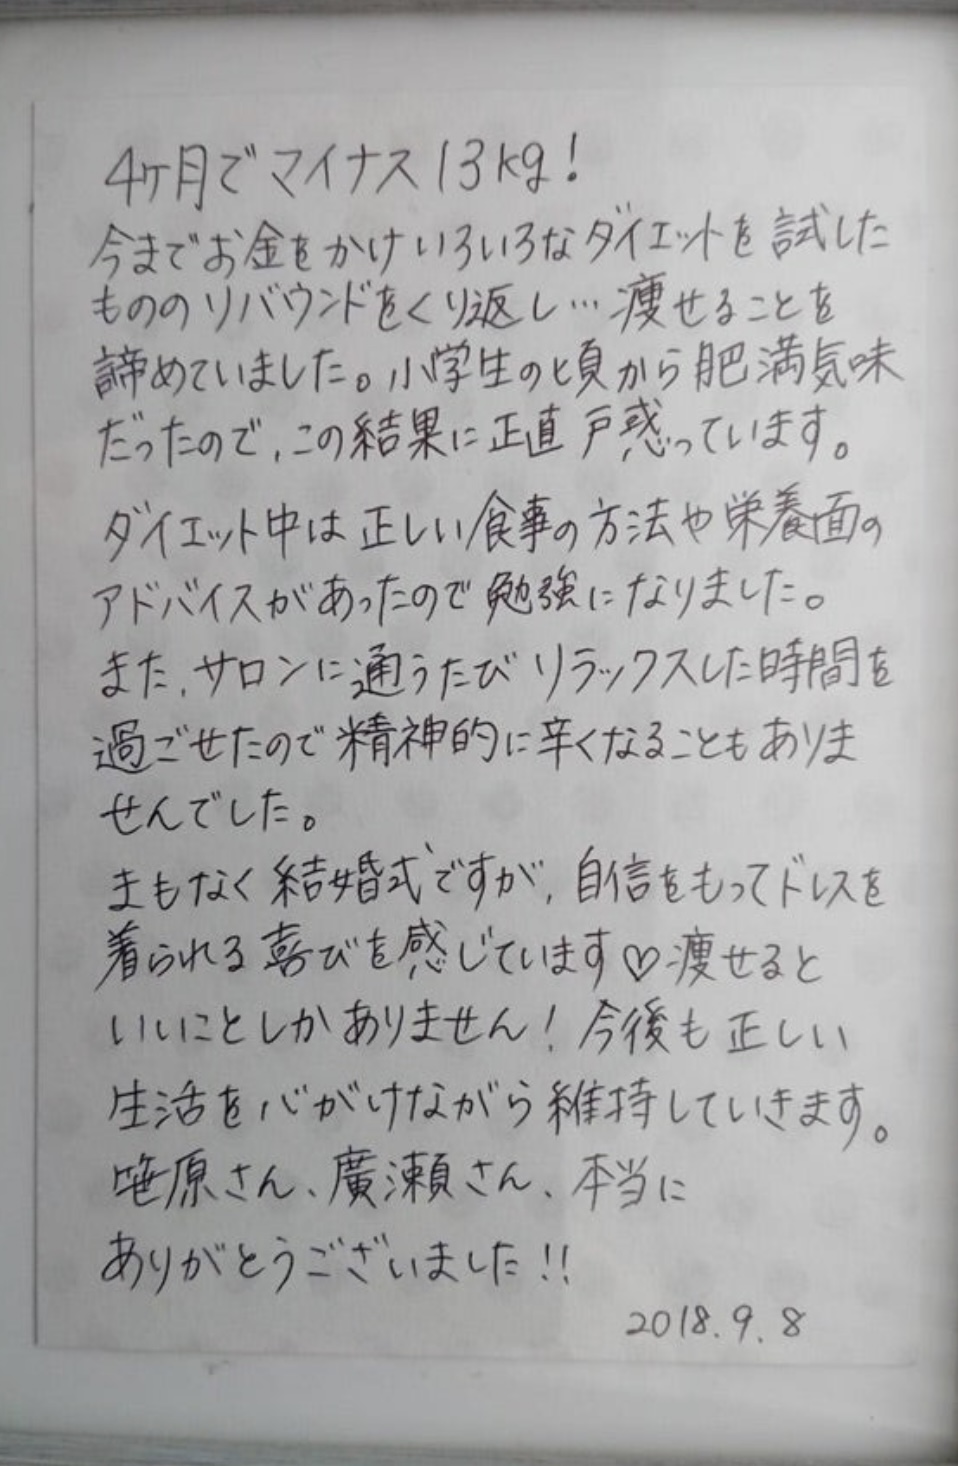 4ヶ月でマイナス13kg!
今までお金をかけいろいろなダイエットを試した
もののリバウンドをくり返し…痩せることを
諦めていました。小学生の頃から肥満気味
だったので、この結果に正直戸惑っています。
ダイエット中は正しい食事の方法や栄養面の
アドバイスがあったので勉強になりました。
また、サロンに通うたびリラックスした時間を
過ごせたので精神的に辛くなることもありま
せんでした。
まもなく結婚式ですが、自信をもってドレスを
着られる喜びを感じています♡痩せると
いいことしかありません!今後も正しい
生活を心がけながら維持していきます。
笹原さん、廣瀬さん、本当に
ありがとうございました!!
2018.9.8